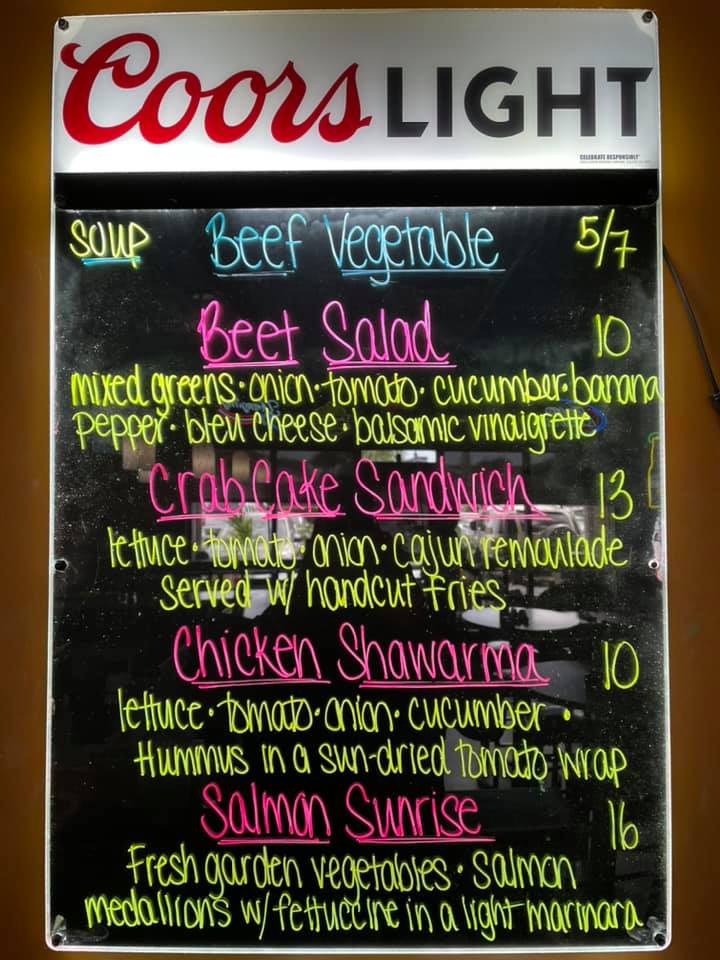 Coors LIGHT
CELEBRATE RESPONSIBLY®
SOUP Beef Vegetable 5/7
Beet Salad 10
mixed greens · onion · tomato · cucumber · banana
pepper · bleu cheese · balsamic vinaigrette
Crab Cake Sandwich 13
lettuce · tomato · onion · cajun remoulade
served w/ handcut fries
Chicken Shawarma 10
lettuce · tomato · onion · cucumber ·
Hummus in a sun-dried tomato wrap
Salmon Sunrise 16
Fresh garden vegetables · salmon
medallions w/ fettuccine in a light marinara